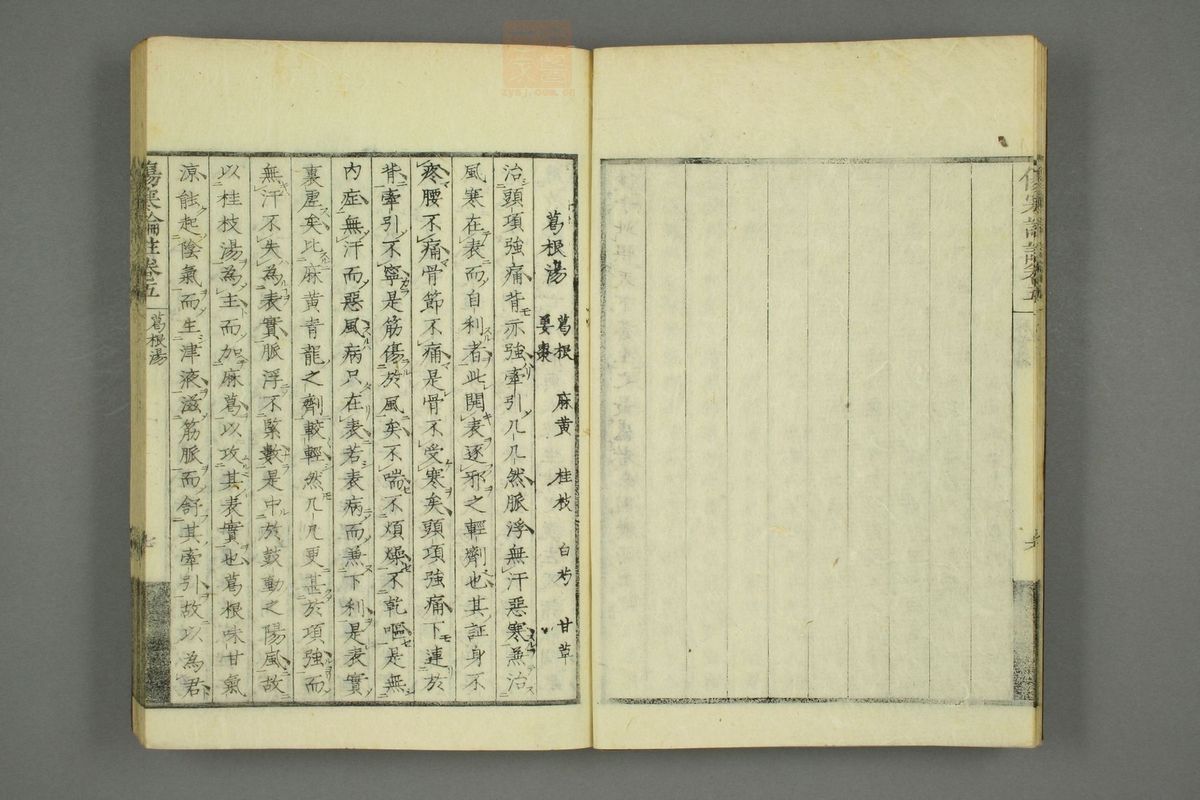 葛根湯 葛根 麻黄 桂枝 白芍 甘草
姜棗
治頭項強痛背亦強牽引几几然脈浮無汗惡寒兼治
風寒在表而自利者此開表逐邪之輕劑也其証身不
疼腰不痛骨節不痛是骨不受寒矣頭項強痛下連於
背牽引不寧是筋傷於風矣不喘不煩燥不乾嘔是無
内症無汗而惡風病只在表若表病而兼下利是表實
裏虛矣比麻黄青龍之劑較輕然几几更甚於項強而
無汗不失為表實脈浮不緊數是中於鼓動之陽風故
以桂枝湯為主而加麻葛以攻其表實也葛根味甘氣
涼能起陰氣而生津液滋筋脈而舒其牽引故以為君
傷寒論註卷五 葛根湯 七